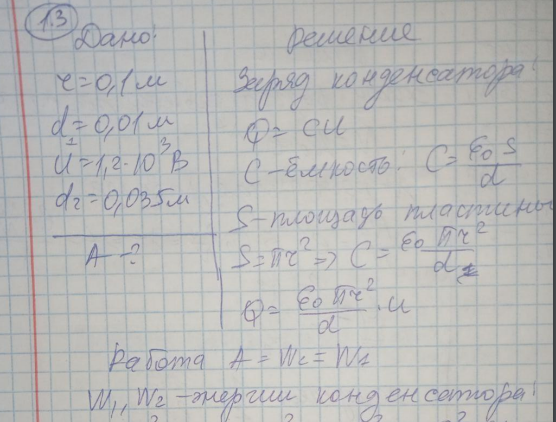 1.3
Дано:
r=0,1м
d₁=0,01м
U=1,2·10³В
d₂=0,035м
A-?
Решение
Заряд конденсатора:
Q=CU
C-ёмкость: C=ε₀S/d
S-площадь пластины
S=πr² => C=ε₀πr²/d
Q=ε₀πr²/d·U
Работа A=W₂=W₁
W₁, W₂-энергии конденсатора: